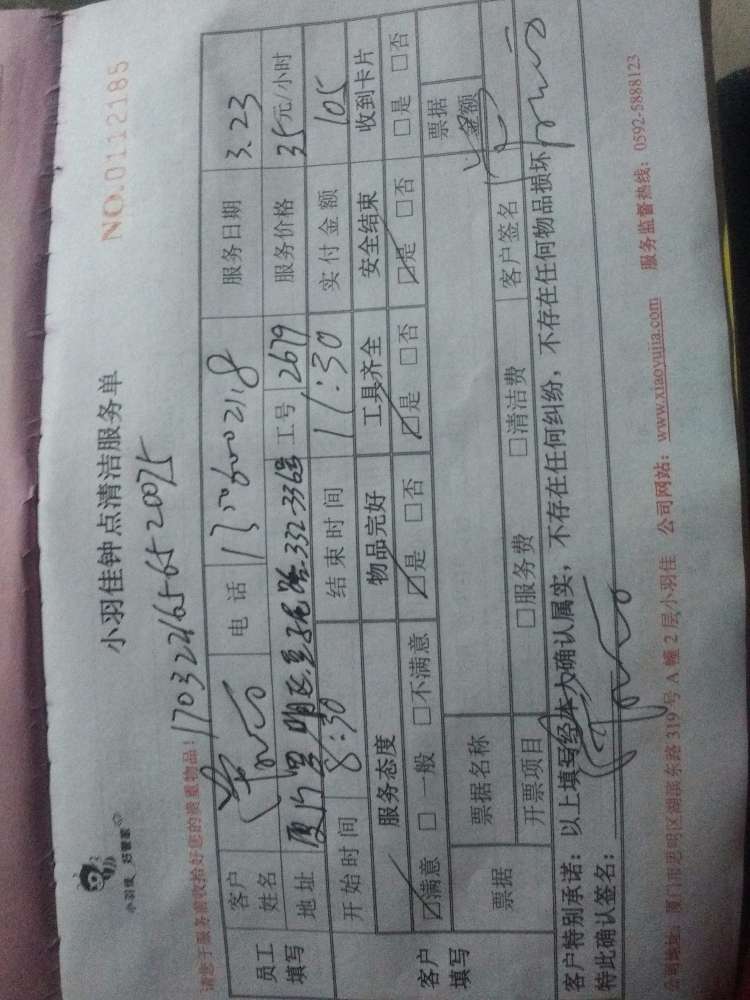 小羽佳 好管家
小羽佳钟点清洁服务单
NO.0112185
请您于服务前收拾好您的贵重物品!
170322165656520095
员工填写
客户姓名
电话
服务日期 3.23
地址 厦门思明区 332-336号
工号 2679
服务价格 35元/小时
开始时间 8:30
结束时间 11:30
实付金额 105
客户填写
服务态度 物品完好 工具齐全 安全结束 收到卡片
☑满意 □一般 □不满意 ☑是 □否 ☑是 □否 ☑是 □否 □是 □否
票据
票据名称
票据金额
开票项目 □服务费 □清洁费 客户签名
客户特别承诺:以上填写经本人确认属实,不存在任何纠纷,不存在任何物品损坏
特此确认签名:
公司地址:厦门市思明区湖滨东路319号A幢2层小羽佳 公司网站:www.xiaoyujia.com 服务监督热线:0592-5888123